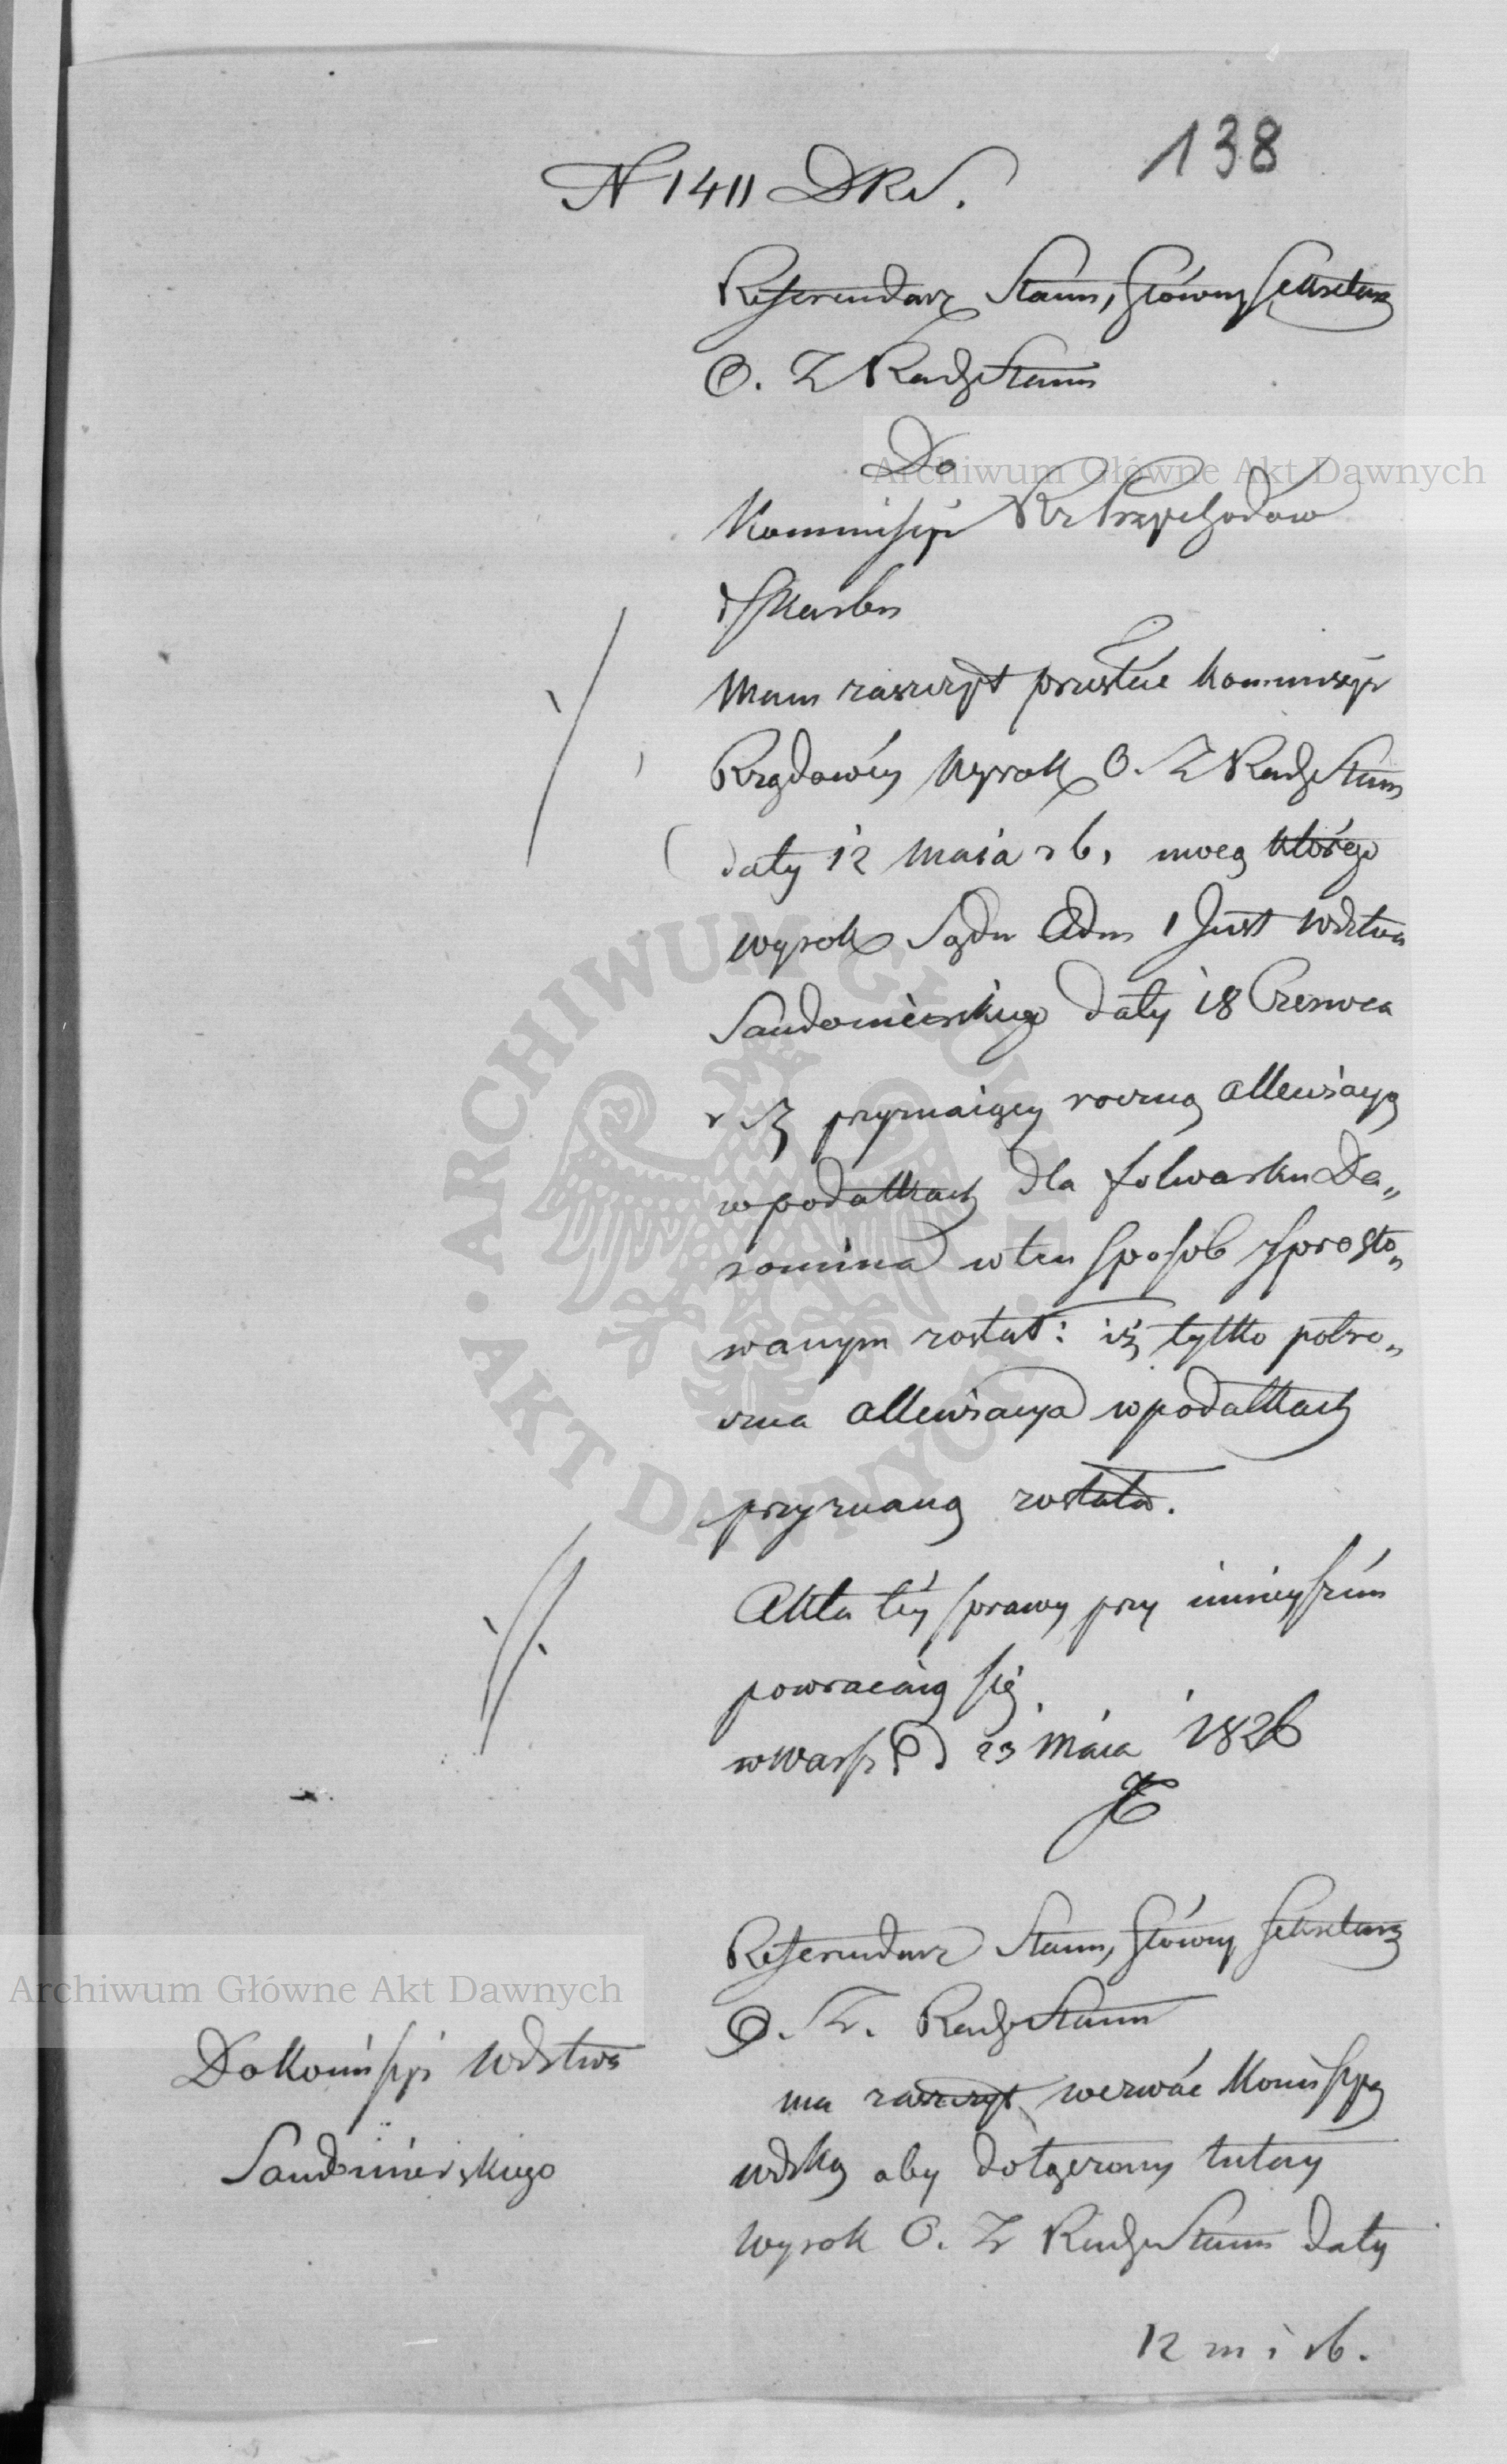 138
N 1411 DRS.
Referendarz Stanu, Główny Sekretarz
O. Z Rady Stanu
Do
Kommissyi Rz Przychodów
i Skarbu
Mam zaszczyt przesłać Kommissyi
Rządowéy Wyrok O. Z Rady Stanu
daty 12 Maia r b, mocą którego
wyrok Sądu Adm 1 Inst Wdztwa
Sandomierskiego daty 18 Czerwca
r z przyznaiący roczną allewiacyą
w podatkach dla folwarku Da„
romina w ten sposób sprosto„
wanym został: iż tylko półro„
czna allewiacya w podatkach
przyznaną została.
Akta téy sprawy przy ninieyszém
powracaią się
w Warsz d 23 Maia 1826
Referendarz Stanu, Główny Sekretarz
O. Z. Rady Stanu
Do Kommissyi Wdztwa
Sandomierskiego
ma zaszczyt wezwać Kommissyą
Wdzką aby dołączony tutay
Wyrok O. Z Rady Stanu daty
12 m i r b.
Archiwum Główne Akt Dawnych
ARCHIWUM GŁÓWNE AKT DAWNYCH
Archiwum Główne Akt Dawnych